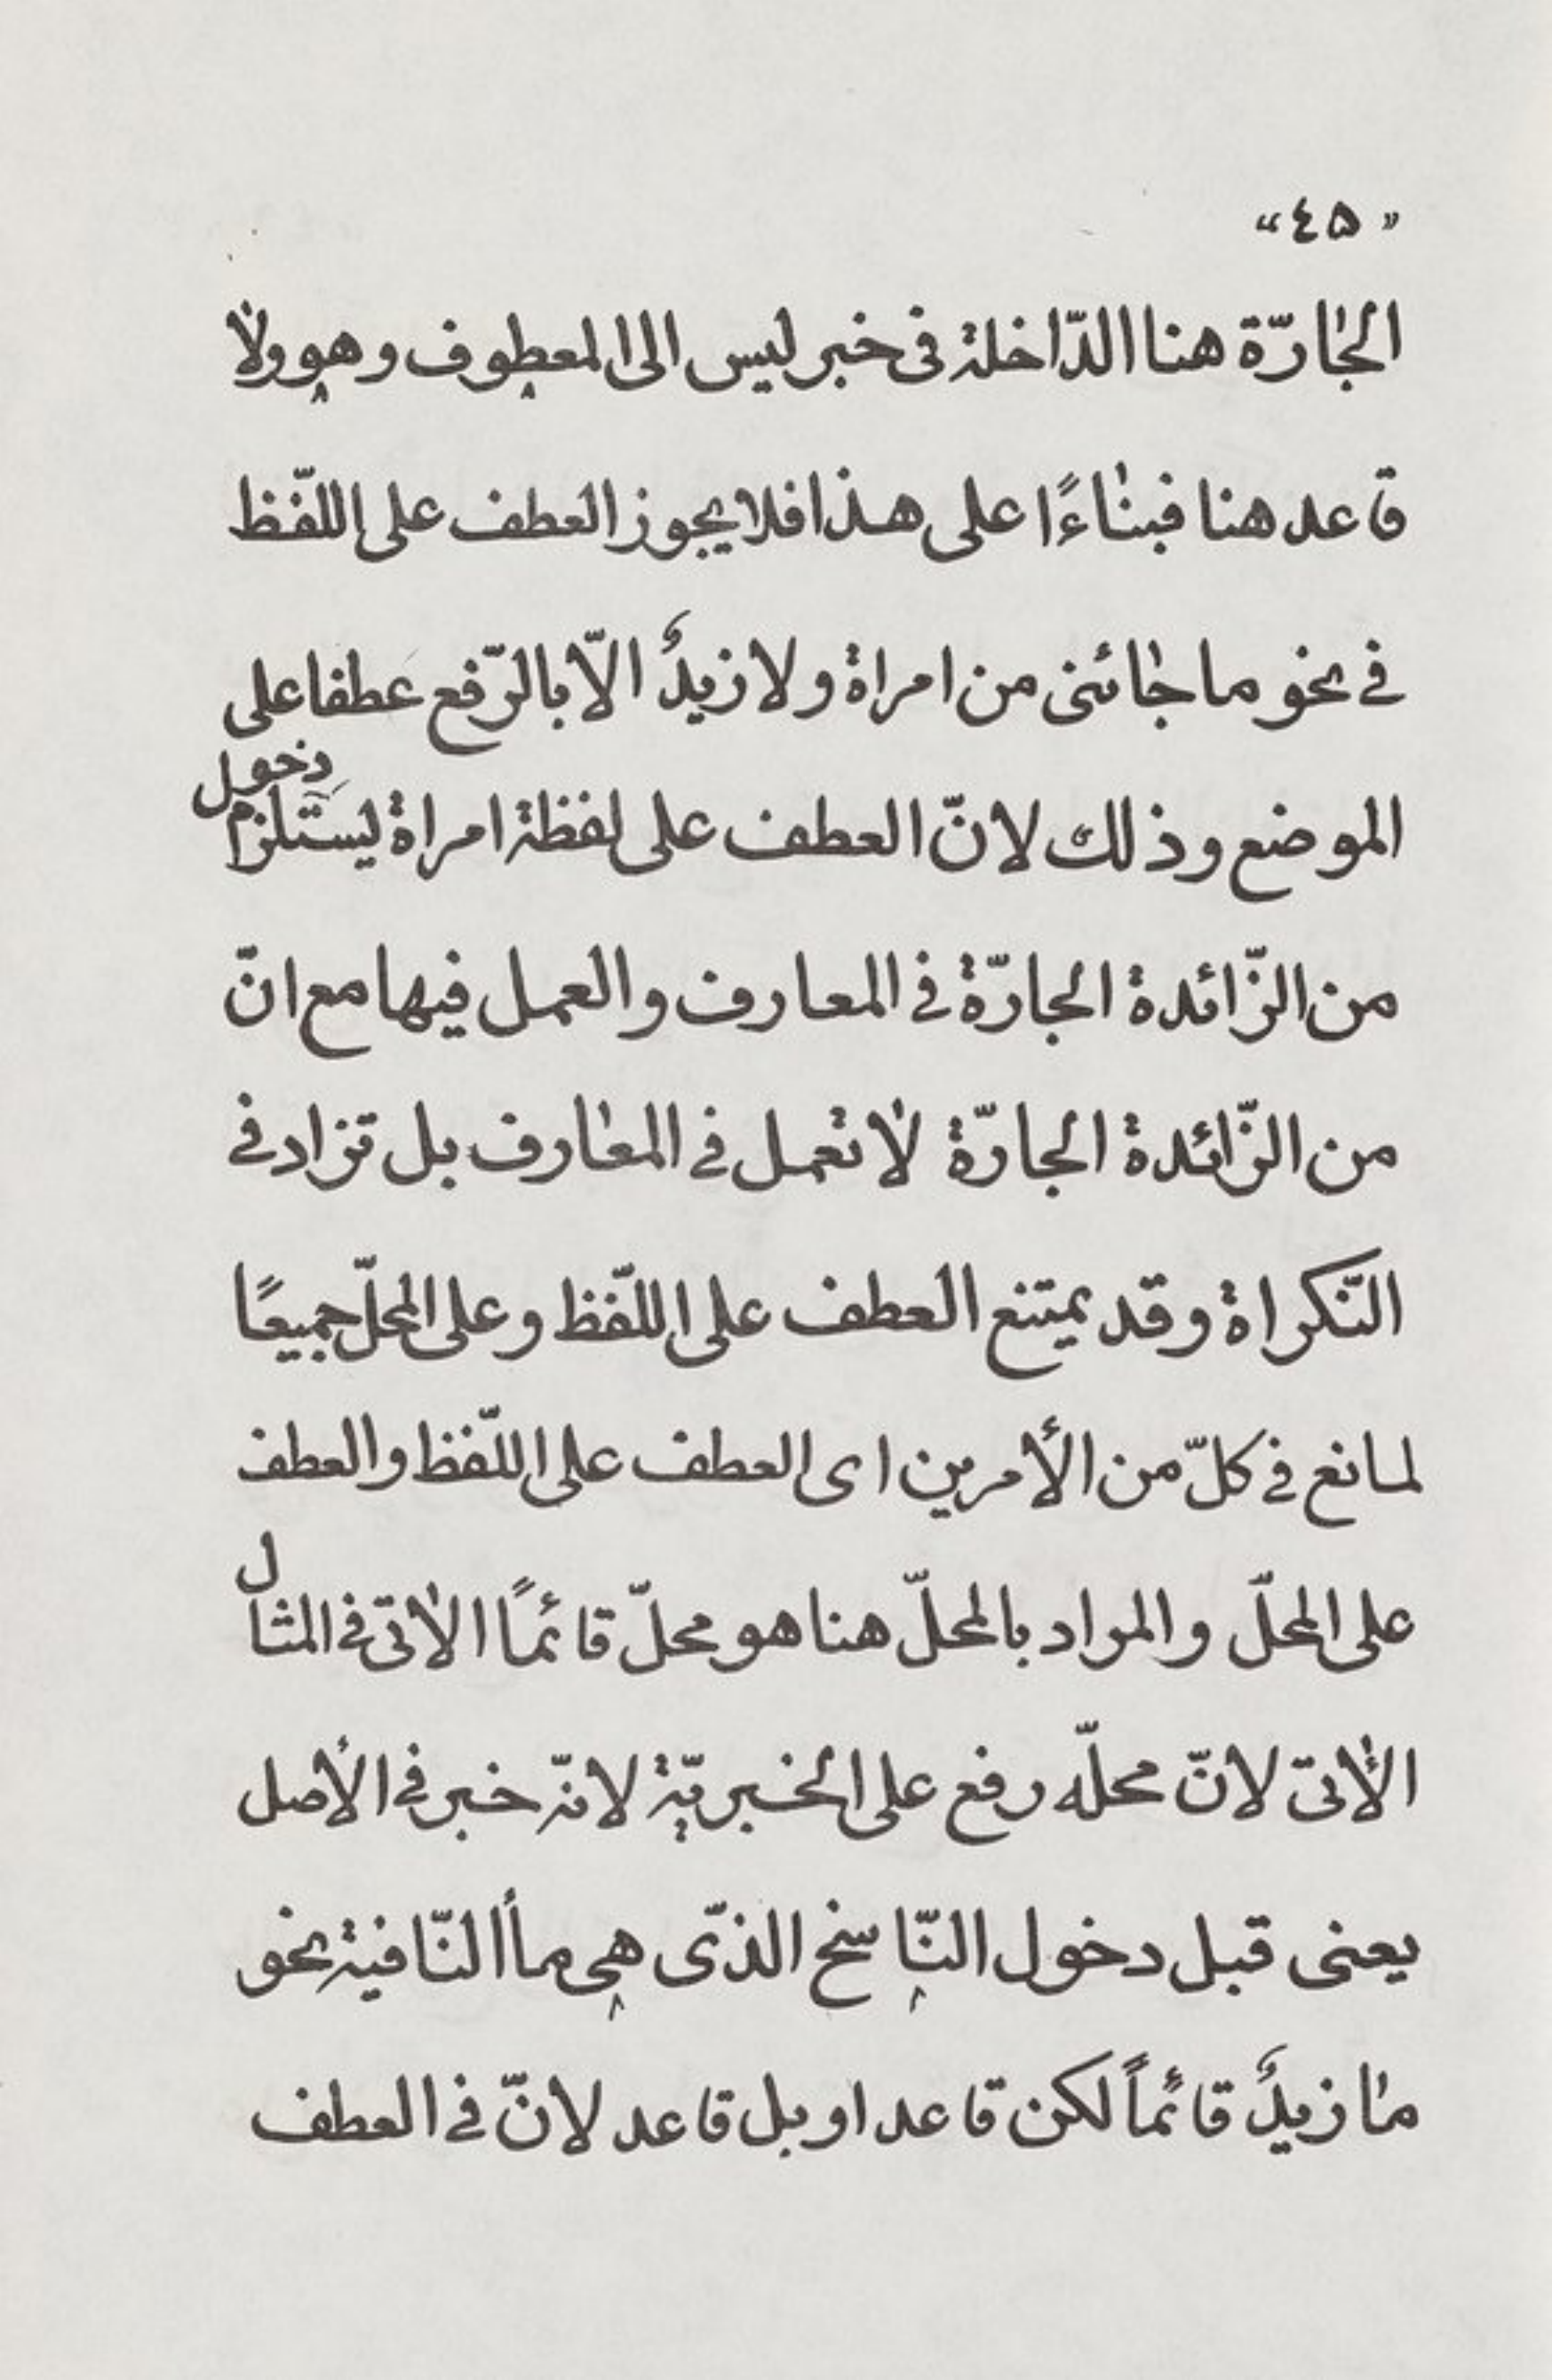 «٤۵»
الجٰارّة هنا الدّاخلة فى خبر ليس الى المعطوف وهو ولٰا
قاعد هنا فبنٰاءًا على هذا فلا يجوز العطف على اللّفظ
فى نحو ما جٰائنى من امراة ولا زيدٌ الاّ بالرّفع عطفا على
الموضع وذلك لانّ العطف على لفظة امراة ليستلزم دخول
من الزّائدة الجارّة فى المعارف والعمل فيها مع انّ
من الزّائدة الجارّة لٰا تعمل فى المعٰارف بل تزاد فى
النّكراة وقد يمتنع العطف على اللّفظ وعلى المحلّ جميعًا
لمانع فى كلّ من الأمرين اى العطف على اللّفظ والعطف
على المحلّ والمراد بالمحلّ هنا هو محلّ قائمًا الاٰتى فى المثال
الاٰتى لانّ محلّه رفع على الخبريّة لانّه خبر فى الأصل
يعنى قبل دخول النّاسخ الذّى هى مأ النّافية نحو
مٰا زيدٌ قائماً لكن قاعد او بل قاعد لانّ فى العطف